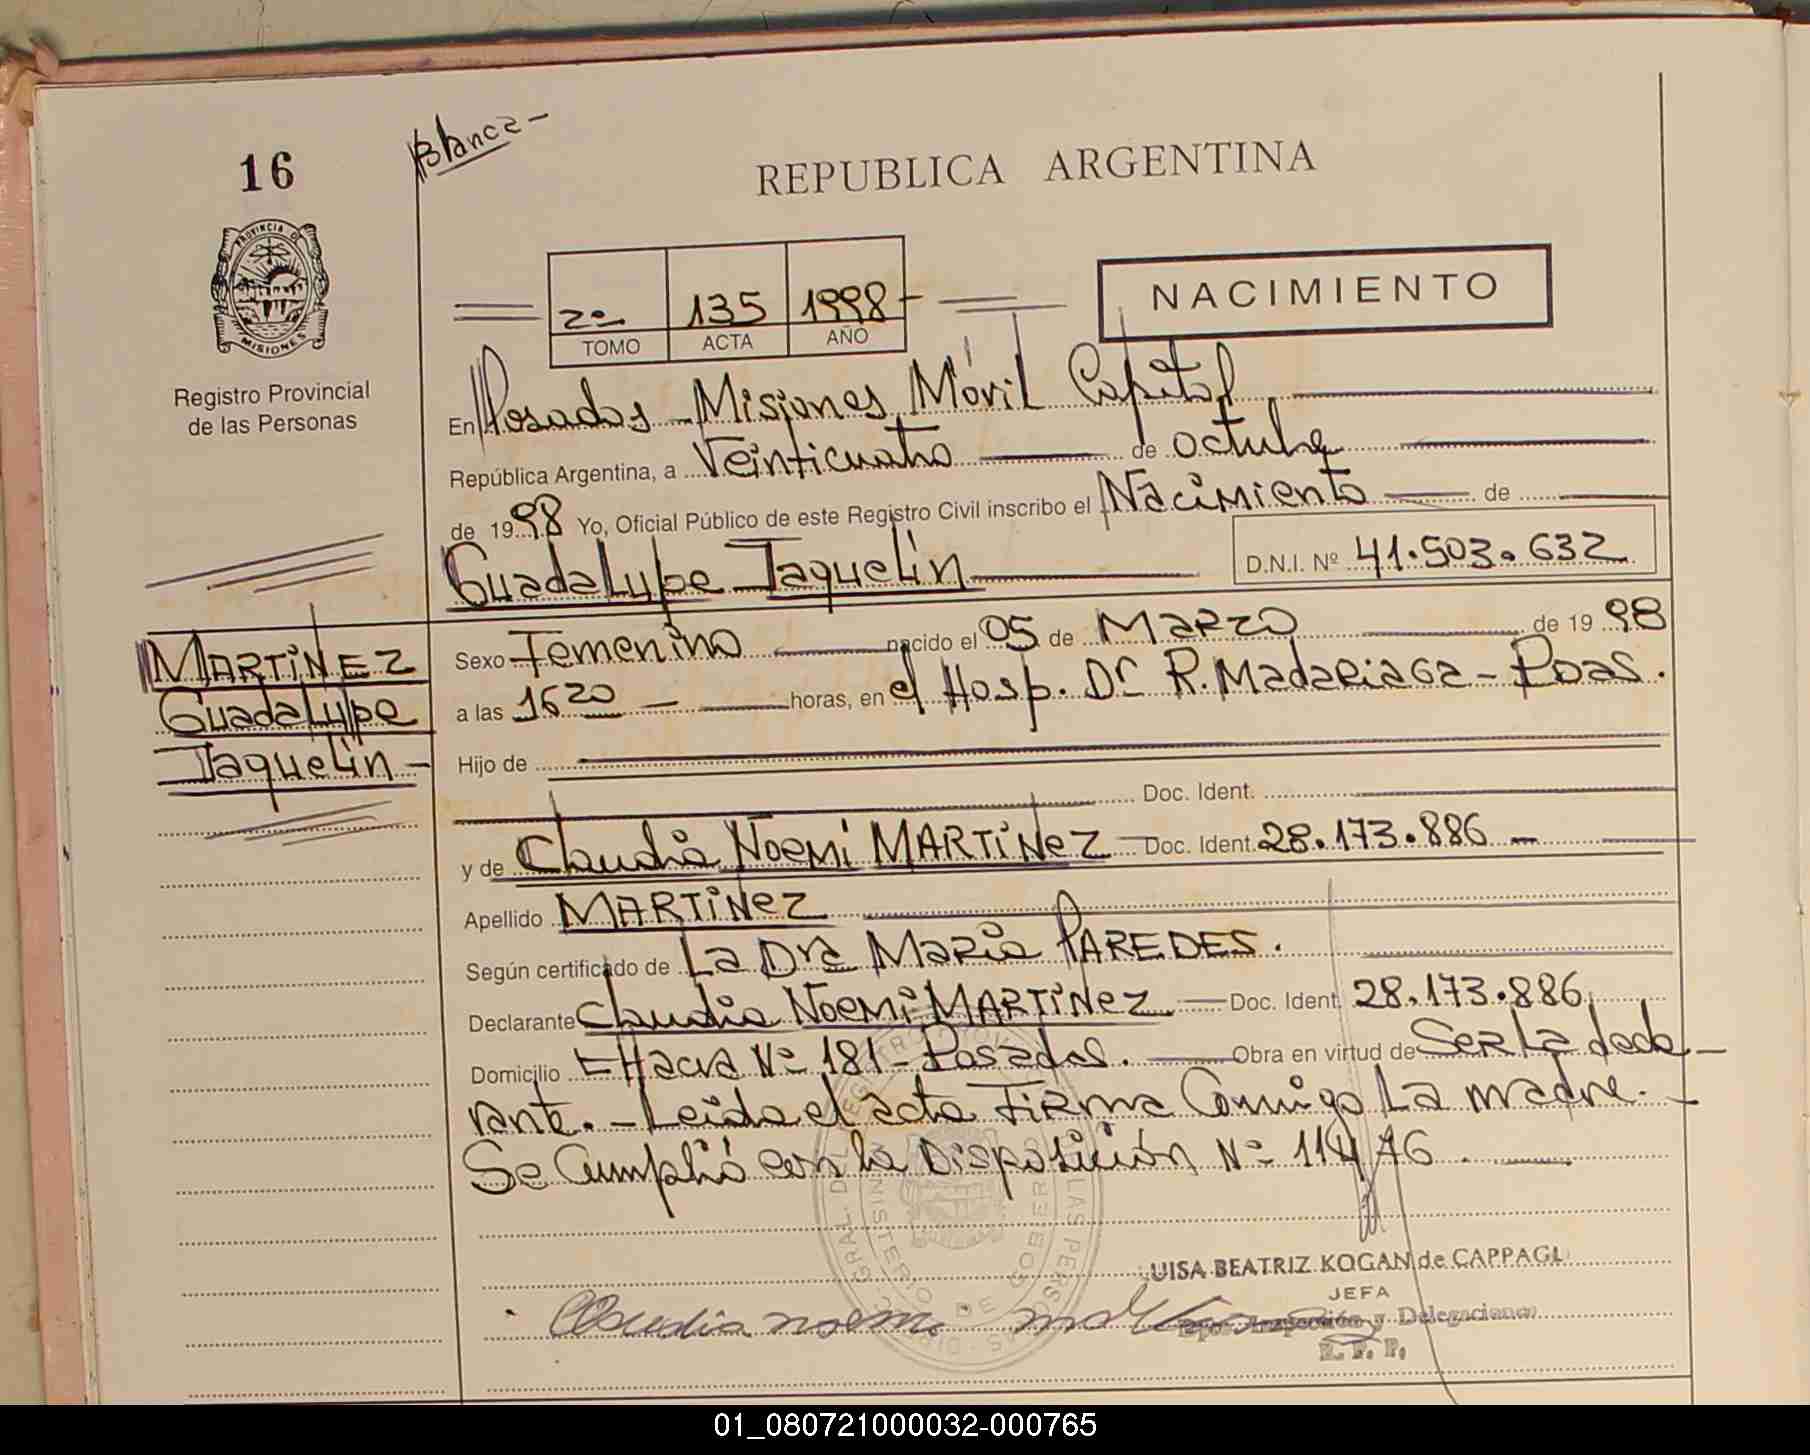 16
Blanca-
REPUBLICA ARGENTINA
PROVINCIA DE
MISIONES
2º 135 1998-
TOMO ACTA AÑO
NACIMIENTO
Registro Provincial
de las Personas
En Posadas - Misiones Móvil Capital
República Argentina, a Veinticuatro de octubre
de 1998 Yo, Oficial Público de este Registro Civil inscribo el Nacimiento de
Guadalupe Jaquelin D.N.I. Nº 41.503.632
MARTINEZ
Guadalupe
Jaquelin-
Sexo Femenino nacido el 05 de Marzo de 1998
a las 1620 - horas, en el Hosp. Dr R. Madariaga - Pdas.
Hijo de
Doc. Ident.
y de Claudia Noemi MARTINEZ Doc. Ident. 28.173.886 -
Apellido MARTINEZ
Según certificado de La Dra Maria PAREDES.
Declarante Claudia Noemi MARTINEZ Doc. Ident. 28.173.886
Domicilio Nº 181 - Posadas. Obra en virtud de Ser La decla-
rante. - Leida el acta Firma Conmigo La madre. -
Se Cumplió con la Disposición Nº 114/96.
UISA BEATRIZ KOGAN de CAPPAGLI
JEFA
Dpto. Inspección y Delegaciones
R. P. P.
Claudia noemi
01_080721000032-000765